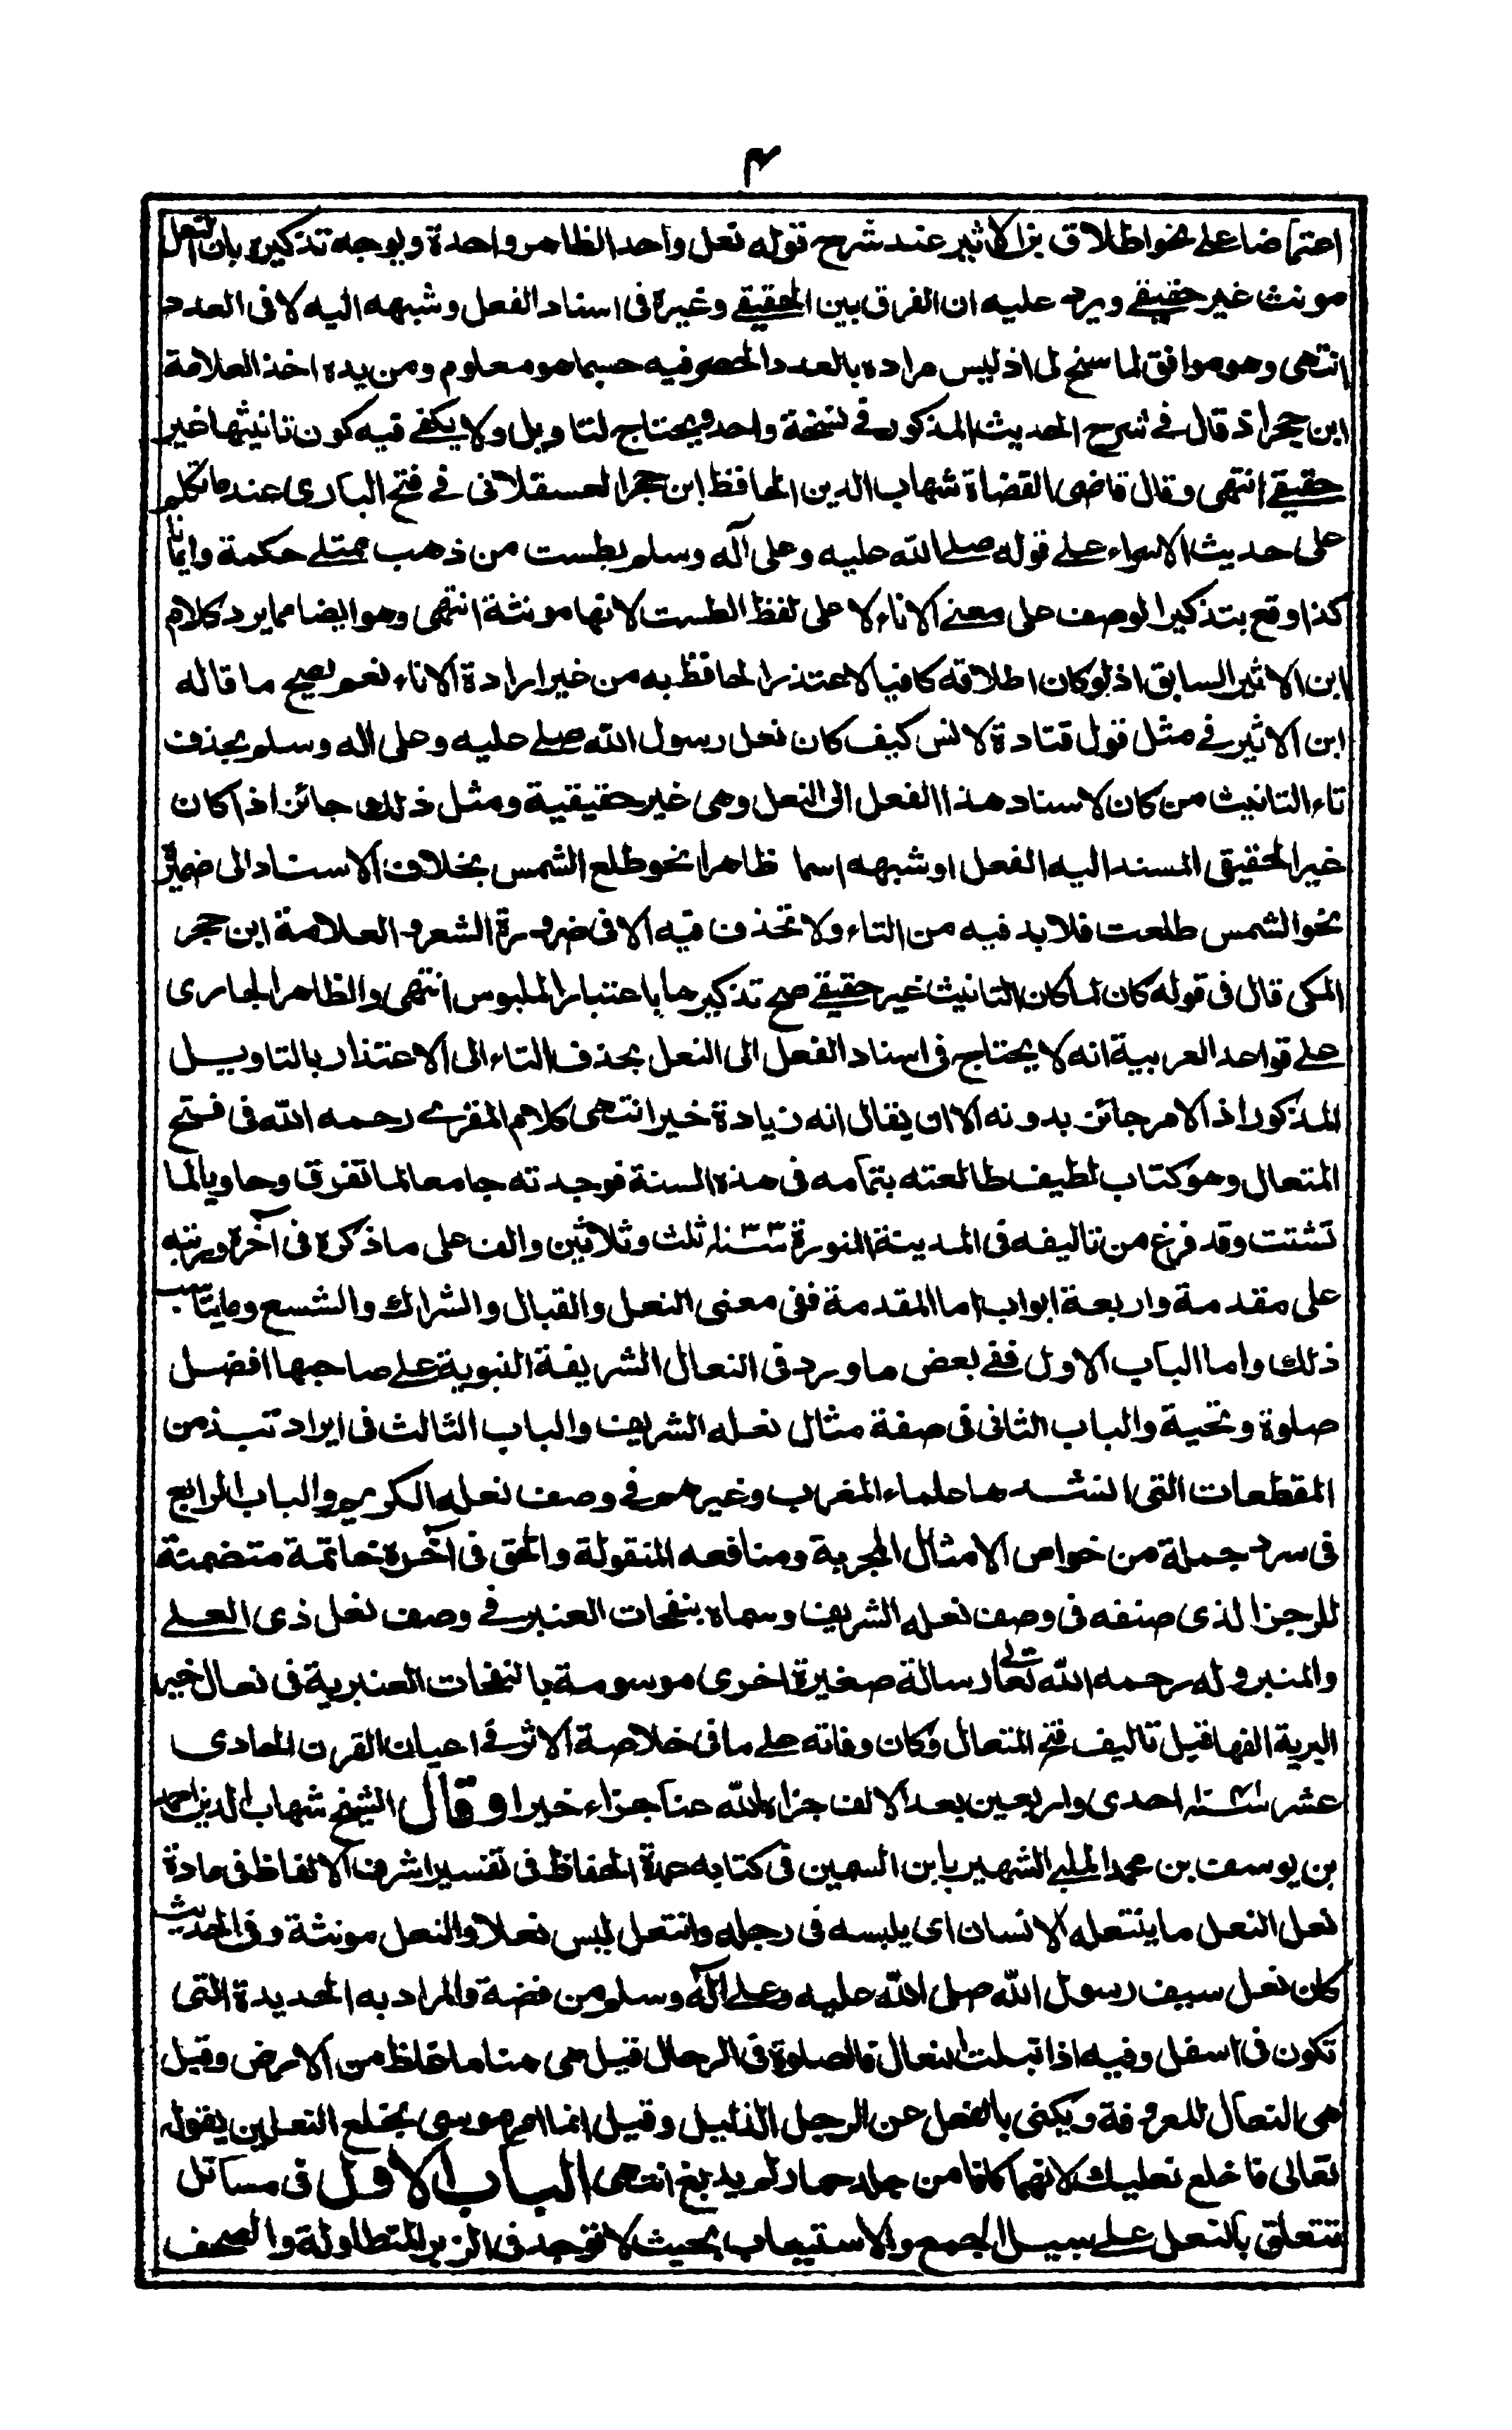 ٤
اعتراضا على نحو اطلاق بن الاثير عند شرح قوله نعل واحد الظاهر واحدة ويوجه تذكيره بان النعل
مونث غير حقيقي ويرد عليه ان الفرق بين الحقيقي وغيره في اسناد الفعل وشبهه اليه لا في العدد
انتهى وهو موافق لما سنح لى اذ ليس مراده بالعدد الحصر فيه حسبما هو معلوم ومن يده اخذ العلامة
ابن حجر اذ قال في شرح الحديث المذكور في نسخة واحد ويحتاج لتاويل ولا يكفي فيه كون تانيثها غير
حقيقي انتهى وقال قاضى القضاة شهاب الدين الحافظ ابن حجر العسقلانى في فتح البارى عند ما تكلم
على حديث الاسراء على قوله صلى الله عليه وعلى آله وسلم بطست من ذهب ممتلى حكمة وايمانا
كذا وقع بتذكير الوصف على معنى الاناء لا على لفظ الطست لانها مونثة انتهى وهو ايضا مما يرد كلام
ابن الاثير السابق اذ لو كان اطلاقه كافيا لاعتذر الحافظ به من غير ارادة الاناء نعم يصح ما قاله
ابن الاثير في مثل قول قتادة لانس كيف كان نعل رسول الله صلى عليه وعلى اله وسلم بحذف
تاء التانيث من كان لاسناد هذا الفعل الى النعل وهى غير حقيقية ومثل ذلك جائز اذا كان
غير الحقيقى المسند اليه الفعل او شبهه اسما ظاهرا نحو طلع الشمس بخلاف الاسناد الى ضميره
نحو الشمس طلعت فلابد فيه من التاء ولا تحذف فيه الا فى ضرورة الشعر والعلامة ابن حجر
المكى قال فى قوله كان لما كان التانيث غير حقيقي صح تذكيرها باعتبار الملبوس انتهى والظاهر الجارى
على قواعد العربية انه لا يحتاج فى اسناد الفعل الى النعل بحذف التاء الى الاعتذار بالتاويل
المذكور اذ الامر جائز بدونه الا ان يقال انه زيادة خير انتهى كلام المقرى رحمه الله فى فتح
المتعال وهو كتاب لطيف طالعته بتمامه فى هذه السنة فوجدته جامعا لما تفرق وحاويا لما
تشتت وقد فرغ من تاليفه فى المدينة المنورة سنة ١٠٣٣ ثلث وثلاثين والف على ما ذكره فى آخره ورتبه
على مقدمة واربعة ابواب اما المقدمة ففى معنى النعل والقبال والشراك والشسع وما يناسب
ذلك واما الباب الاول ففي بعض ما ورد فى النعال الشريفة النبوية على صاحبها افضل
صلوة وتحية والباب الثانى فى صفة مثال نعله الشريف والباب الثالث فى ايراد نبذ من
المقطعات التى انشدها علماء المغرب وغيرهم في وصف نعله الكريم والباب الرابع
فى سرد جملة من خواص الامثال المجربة ومنافعه المنقولة والحق فى آخره خاتمة متضمنة
للرجز الذى صنفه فى وصف نعله الشريف وسماه بنفحات العنبر في وصف نعل ذى العلى
والمنبر وله رحمه الله تعالى رسالة صغيرة اخرى موسومة بالنفحات العنبرية فى نعال خير
البرية الفها قبل تاليف فتح المتعال وكان وفاته على ما فى خلاصة الاثر في اعيان القرن الحادى
عشر سنة ١٠٤١ احدى واربعين بعد الالف جزاه الله عنا جزاء خيرا وقال الشيخ شهاب الدين احمد
بن يوسف بن محمد الحلبى الشهير بابن السمين فى كتابه عمدة الحفاظ فى تفسير اشرف الالفاظ فى مادة
نعل النعل ما ينتعله الانسان اى يلبسه فى رجله وانتعل لبس نعلا والنعل مونثة وفى الحديث
كان نعل سيف رسول الله صلى الله عليه وعلى آله وسلم من فضة والمراد به الحديدة التى
تكون فى اسفل وفيه اذا ابتلت النعال فالصلوة فى الرحال قيل هى هنا ما غلظ من الارض وقيل
هى النعال المعروفة ويكنى بالنعل عن الرجل الذليل وقيل انما امر موسى بخلع النعلين بقوله
تعالى فاخلع نعليك لانهما كانا من جلد حمار لم يدبغ انتهى الباب الاول فى مسائل
تتعلق بالنعل على سبيل الجمع والاستيعاب بحيث لا توجد فى الزبر المتطاولة والصحف